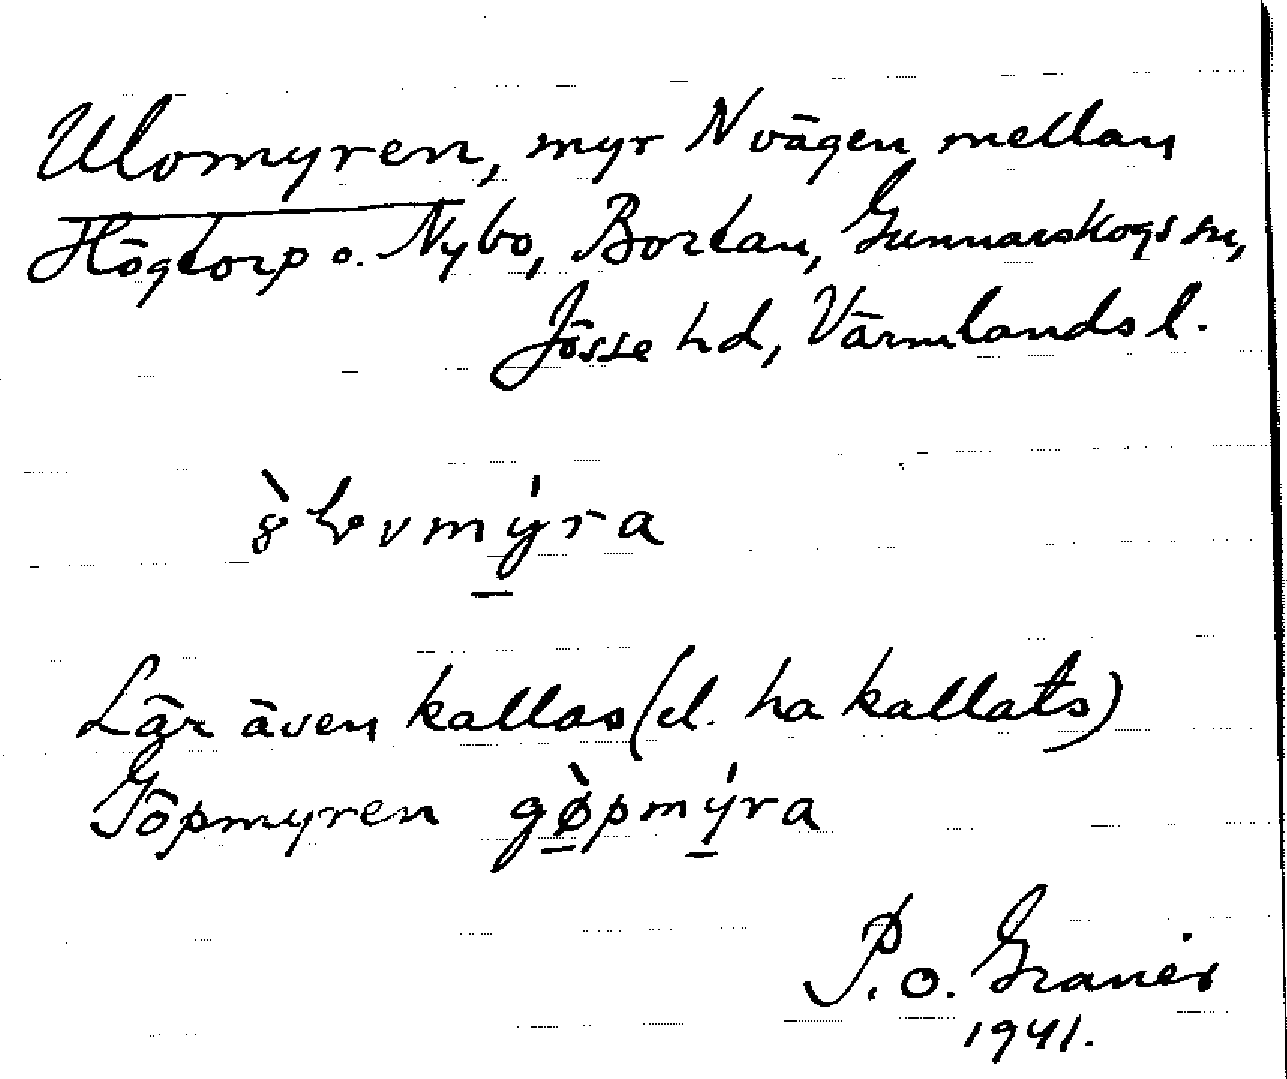 Ulomyren, myr N vägen mellan
Högtorp o. Nybo, Bortan, Gunnarskogs sn,
Jösse hd, Värmlands l.
Lär även kallas (el. ha kallats)
Göpmyren gø̀pmýra
P. O. Granér
1941.